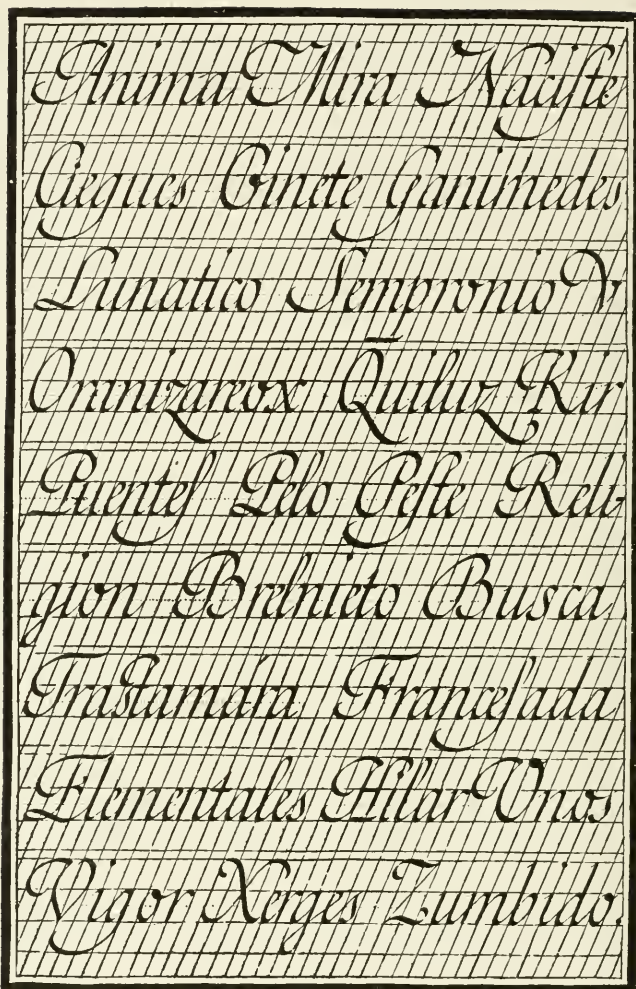 Anima Mira Naciſte
Ciegues Ginete Ganimedes
Lunatico Sempronio V
Omnizareox Quiluz Kir
Puenteſ Pelo Peſte Reli-
gion Brelnieto Busca
Traſtamara Franceſada
Elementales Hilar Vnos
Vigor Xerges Zumbido.